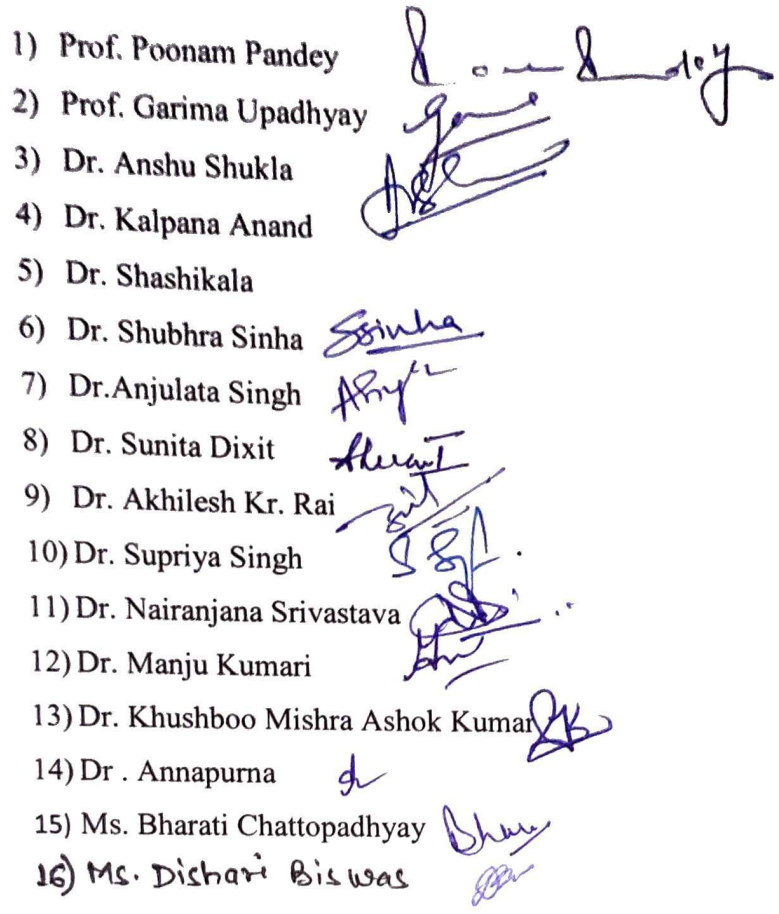 1) Prof. Poonam Pandey
2) Prof. Garima Upadhyay
3) Dr. Anshu Shukla
4) Dr. Kalpana Anand
5) Dr. Shashikala
6) Dr. Shubhra Sinha Ssinha
7) Dr.Anjulata Singh
8) Dr. Sunita Dixit
9) Dr. Akhilesh Kr. Rai
10) Dr. Supriya Singh
11) Dr. Nairanjana Srivastava
12) Dr. Manju Kumari
13) Dr. Khushboo Mishra Ashok Kumar
14) Dr . Annapurna
15) Ms. Bharati Chattopadhyay
16) Ms. Dishari Biswas